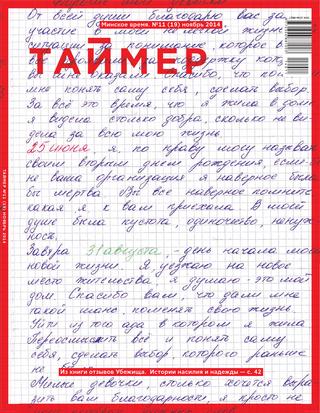 От всей души благодарю вас за
участие в моей нелёгкой жизне
ситуации за понимание, которое в
ТАЙМЕР
Минское время. №11 (19) ноябрь 2014
мне понять саму себя, сделать выбор.
За всё это время, что я жила в дом
я видела столько добра, сколько не ви
дела за всю мою жизнь.
25 июня я, по праву могу назвать
своим вторым днем рождения, если б
не ваша организация я наверное был
бы мертва. Вы все наверное помните
какая я к вам приехала. В моей
душе была пустота, одиночество, ненуж
ность.
Завтра 31 августа, - день начала моей
новой жизни. Я уезжаю на новое
место жительства, я думаю - это мой
дом. Спасибо вам, что дали мне
такой шанс, поменять свою жизнь.
Уйти из того ада в котором я жила
Переосмыслить всё и понять саму
себя, сделать выбор, которого раньше
не
Из книги отзывов Убежища. Истории насилия и надежды — с. 42
Милые девочки, сколько хочется выра
зить вам благодарности, я просто не
ТАЙМЕР №11 (19) НОЯБРЬ 2014